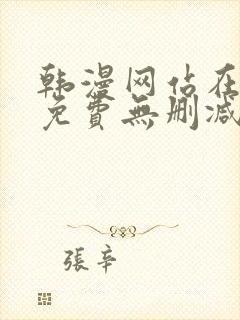 韩漫网站在
免費無删减
張辛